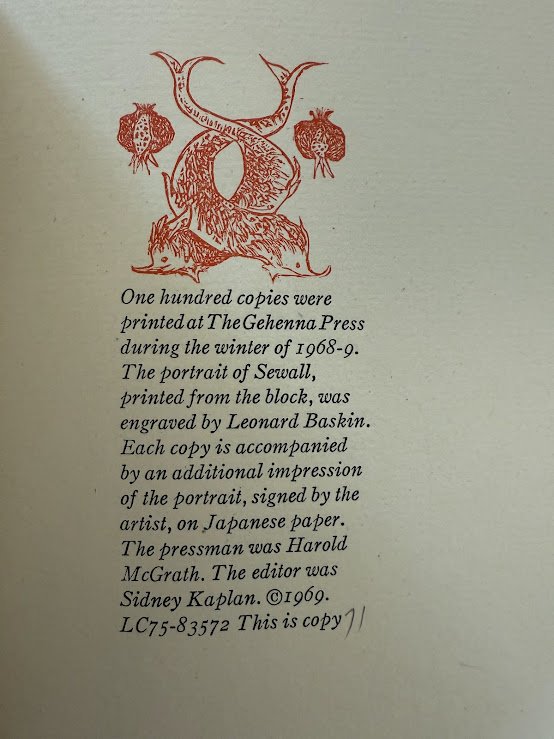 One hundred copies were
printed at The Gehenna Press
during the winter of 1968-9.
The portrait of Sewall,
printed from the block, was
engraved by Leonard Baskin.
Each copy is accompanied
by an additional impression
of the portrait, signed by the
artist, on Japanese paper.
The pressman was Harold
McGrath. The editor was
Sidney Kaplan. ©1969.
LC75-83572 This is copy 71